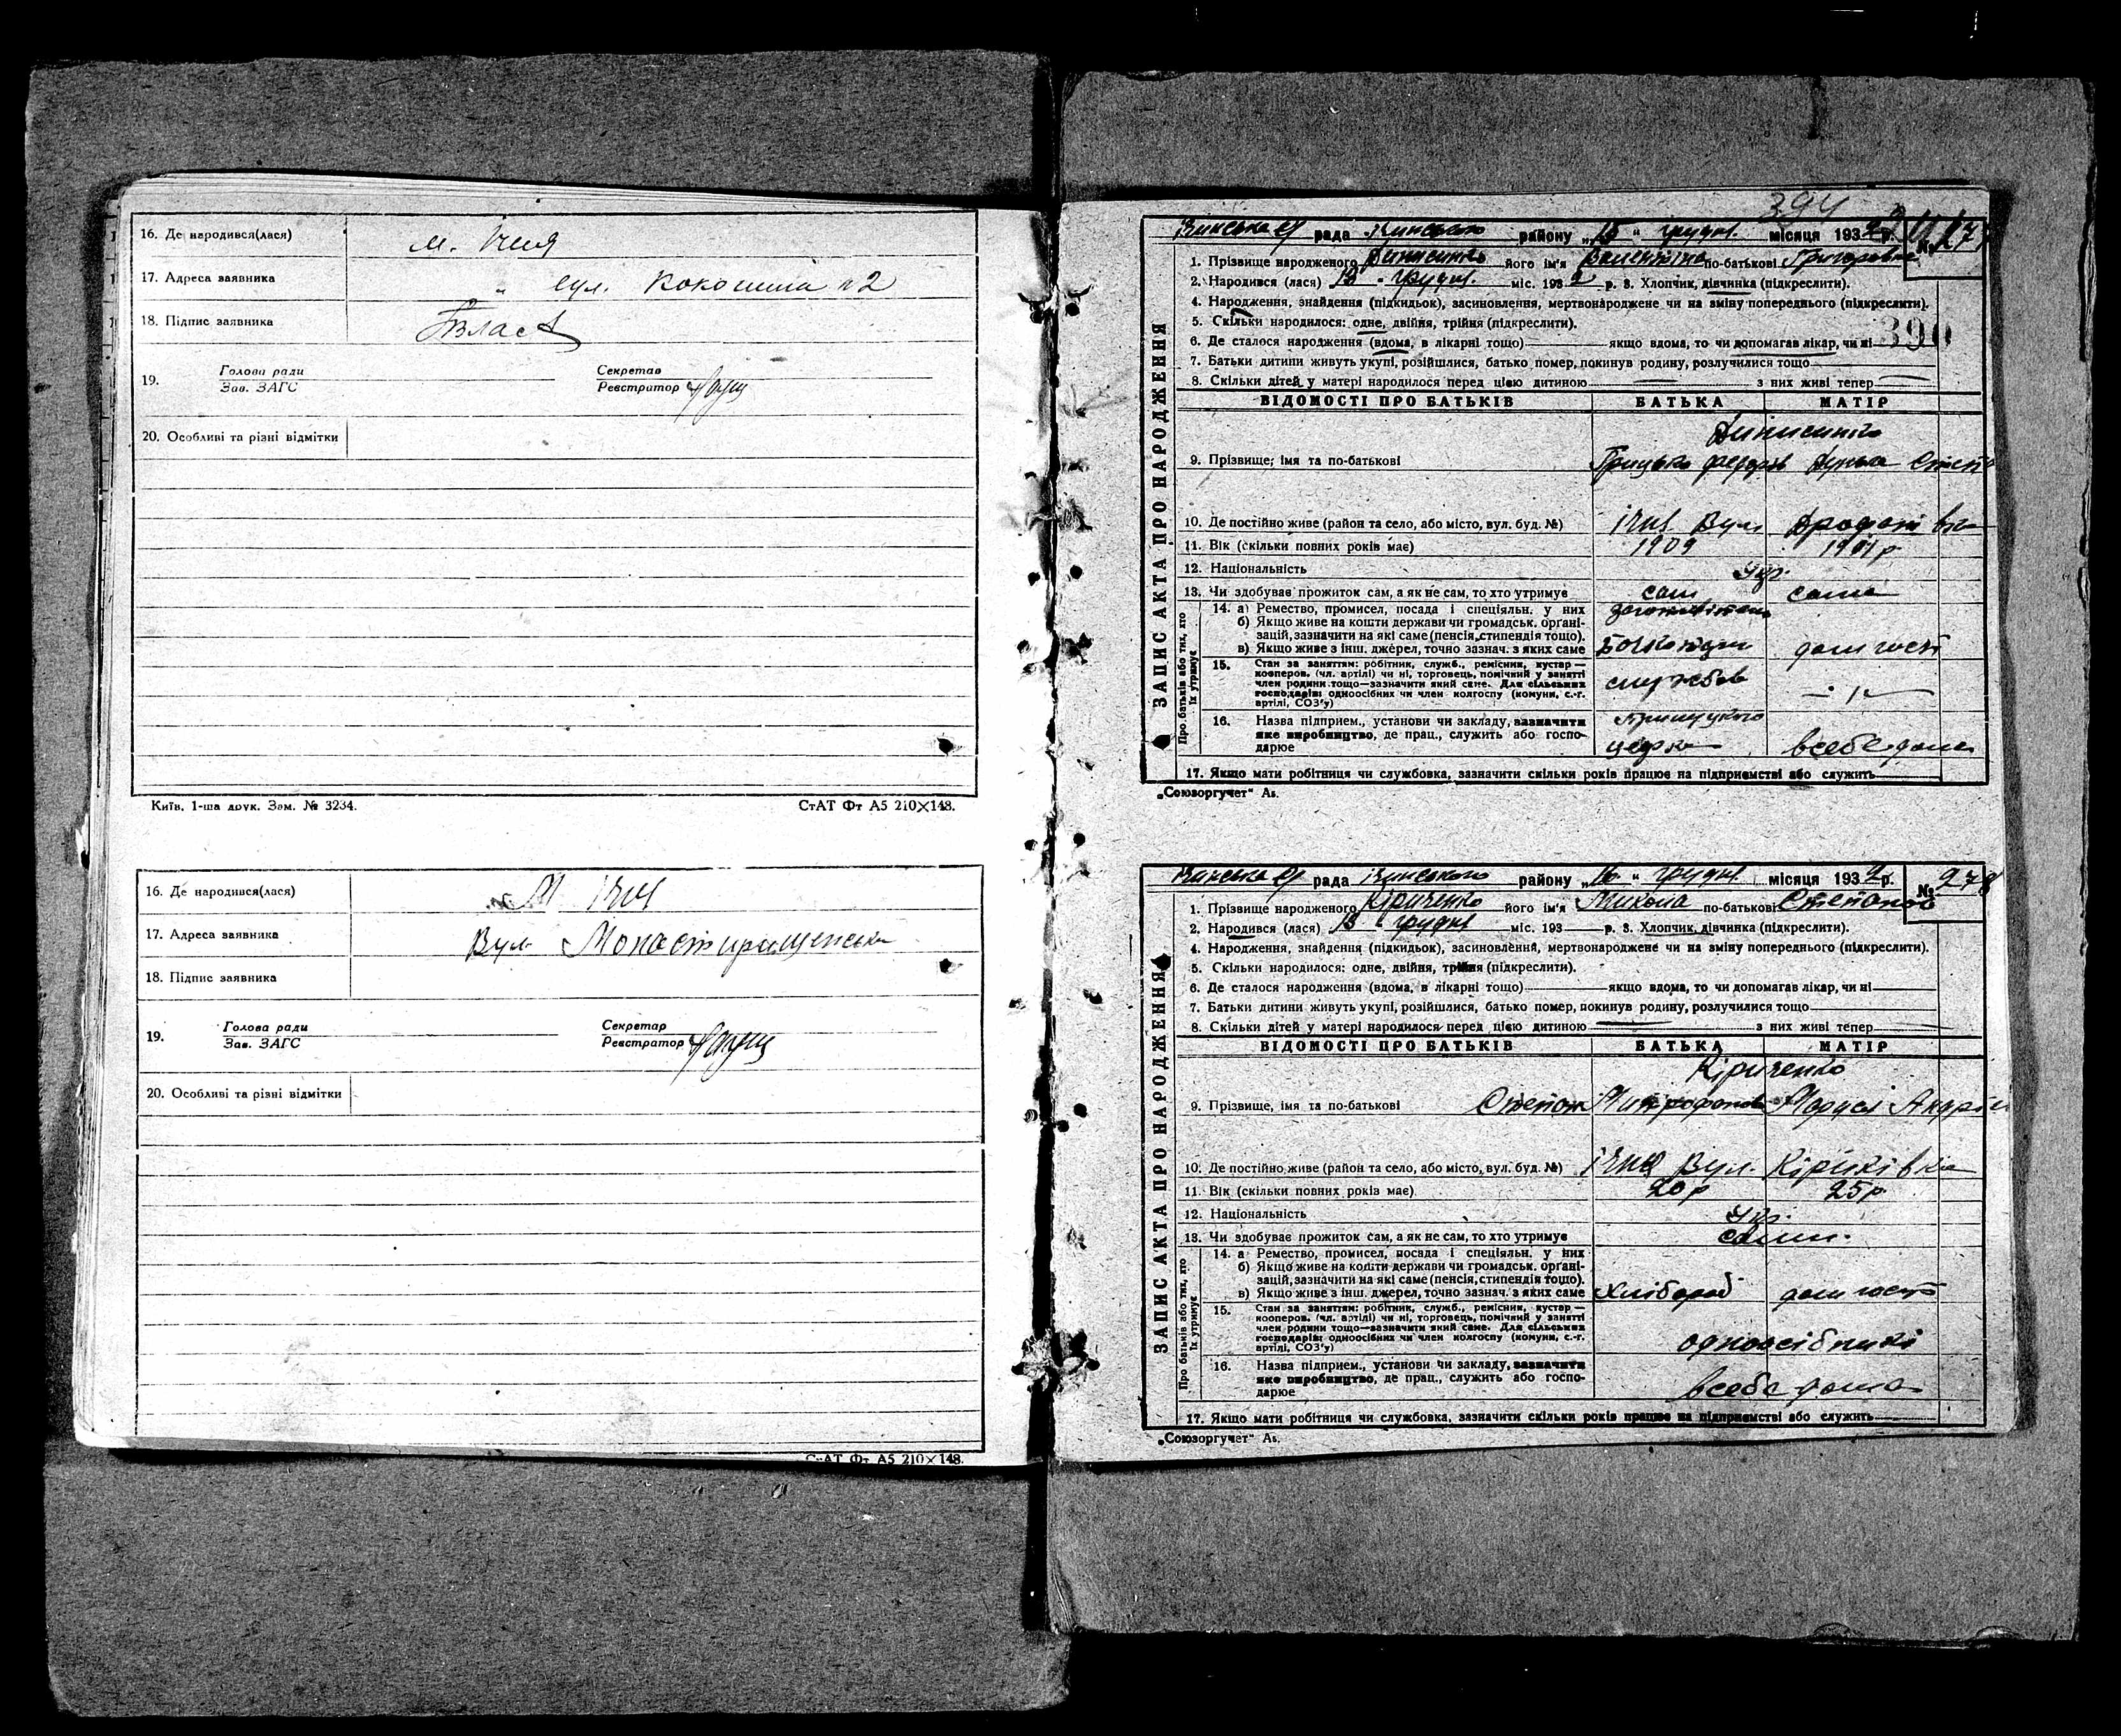 16. Де народився(лася) м. Ічня
17. Адреса заявника " вул. Кокошила №2
18. Підпис заявника
19. Голова ради Секретар
Зав. ЗАГС Реєстратор
20. Особливі та різні відмітки
Київ, 1-ша друк. Зам. № 3234. СтАТ Фт А5 210×148.
16. Де народився(лася) М Ічня
17. Адреса заявника Вул. Монастирищенська
18. Підпис заявника
19. Голова ради Секретар
Зав. ЗАГС Реєстратор
20. Особливі та різні відмітки
СтАТ Фт А5 210×148.
394
Ічнянська рада Ічнянського району „15" грудня місяця 1932р. №
ЗАПИС АКТА ПРО НАРОДЖЕННЯ
1. Прізвище народженого його ім'я Валентина по-батькові Григоровна
2. Народився (лася) 13 грудня міс. 1932 р. 3. Хлопчик, дівчинка (підкреслити).
4. Народження, знайдення (підкидьок), засиновлення, мертвонароджене чи на зміну попереднього (підкреслити).
5. Скільки народилося: одне, двійня, трійня (підкреслити).
390
6. Де сталося народження (вдома, в лікарні тощо) якщо вдома, то чи допомагав лікар, чи ні
7. Батьки дитини живуть укупі, розійшлися, батько помер, покинув родину, розлучилися тощо
8. Скільки дітей у матері народилося перед цією дитиною з них живі тепер
ВІДОМОСТІ ПРО БАТЬКІВ БАТЬКА МАТІР
9. Прізвище, імя та по-батькові Грицько Федоров
10. Де постійно живе (район та село, або місто, вул. буд. №) Ічня Вул.
11. Вік (скільки повних років має) 1909
12. Національність Укр.
13. Чи здобуває прожиток сам, а як не сам, то хто утримує сам сама
Про батьків або тих, хто їх утримує
14. а) Ремество, промисел, посада і спеціяльн. у них
б) Якщо живе на кошти держави чи громадськ. органі-
зацій, зазначити на які саме (пенсія, стипендія тощо).
в) Якщо живе з інш. джерел, точно зазнач. з яких саме дом госп
15. Стан за заняттям: робітник, служб., ремісник, кустар —
кооперов. (чл. артілі) чи ні, торговець, помічний у занятті
член родини тощо—зазначити який саме. Для сільських
господарів: одноосібних чи член колгоспу (комуни, с.-г.
артілі, СОЗ'у)
16. Назва підприєм., установи чи закладу, зазначити
яке виробництво, де прац., служить або госпо-
дарює в себе дома
17. Якщо мати робітниця чи службовка, зазначити скільки років працює на підприємстві або служить
„Союзоргучет" А₅.
Ічнянська рада Ічнянського району „16" грудня місяця 1932р. № 278
ЗАПИС АКТА ПРО НАРОДЖЕННЯ
1. Прізвище народженого Кіриченко його ім'я Микола по-батькові Степанов
2. Народився (лася) 13 грудня міс. 193 р. 3. Хлопчик, дівчинка (підкреслити).
4. Народження, знайдення (підкидьок), засиновлення, мертвонароджене чи на зміну попереднього (підкреслити).
5. Скільки народилося: одне, двійня, трійня (підкреслити).
6. Де сталося народження (вдома, в лікарні тощо) якщо вдома, то чи допомагав лікар, чи ні
7. Батьки дитини живуть укупі, розійшлися, батько помер, покинув родину, розлучилися тощо
8. Скільки дітей у матері народилося перед цією дитиною з них живі тепер
ВІДОМОСТІ ПРО БАТЬКІВ БАТЬКА МАТІР
Кіриченко
9. Прізвище, імя та по-батькові Степан Митрофанов Маруся Андрії
10. Де постійно живе (район та село, або місто, вул. буд. №) Ічня Вул. Кіриківка
11. Вік (скільки повних років має) 20р 25р
12. Національність Укр.
13. Чи здобуває прожиток сам, а як не сам, то хто утримує сами.
Про батьків або тих, хто їх утримує
14. а Ремество, промисел, посада і спеціяльн. у них
б) Якщо живе на кошти держави чи громадськ. органі-
зацій, зазначити на які саме (пенсія, стипендія тощо).
в) Якщо живе з інш. джерел, точно зазнач. з яких саме Хлібороб дом госп
15. Стан за заняттям: робітник, служб., ремісник, кустар —
кооперов. (чл. артілі) чи ні, торговець, помічний у занятті
член родини тощо—зазначити який саме. Для сільських
господарів: одноосібних чи член колгоспу (комуни, с.-г.
артілі, СОЗ'у) одноосібники
16. Назва підприєм., установи чи закладу, зазначити
яке виробництво, де прац., служить або госпо-
дарює в себе дома
17. Якщо мати робітниця чи службовка, зазначити скільки років працює на підприємстві або служить
„Союзоргучет" А₅.